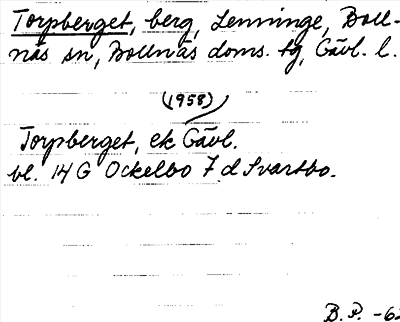 Torpberget, berg, Lenninge, Boll-
näs sn, Bollnäs doms. tg, Gävl. l.
(1958)
Torpberget, ek Gävl.
bl. 14 G Ockelbo 7 d Svartbo.
B. P. -62